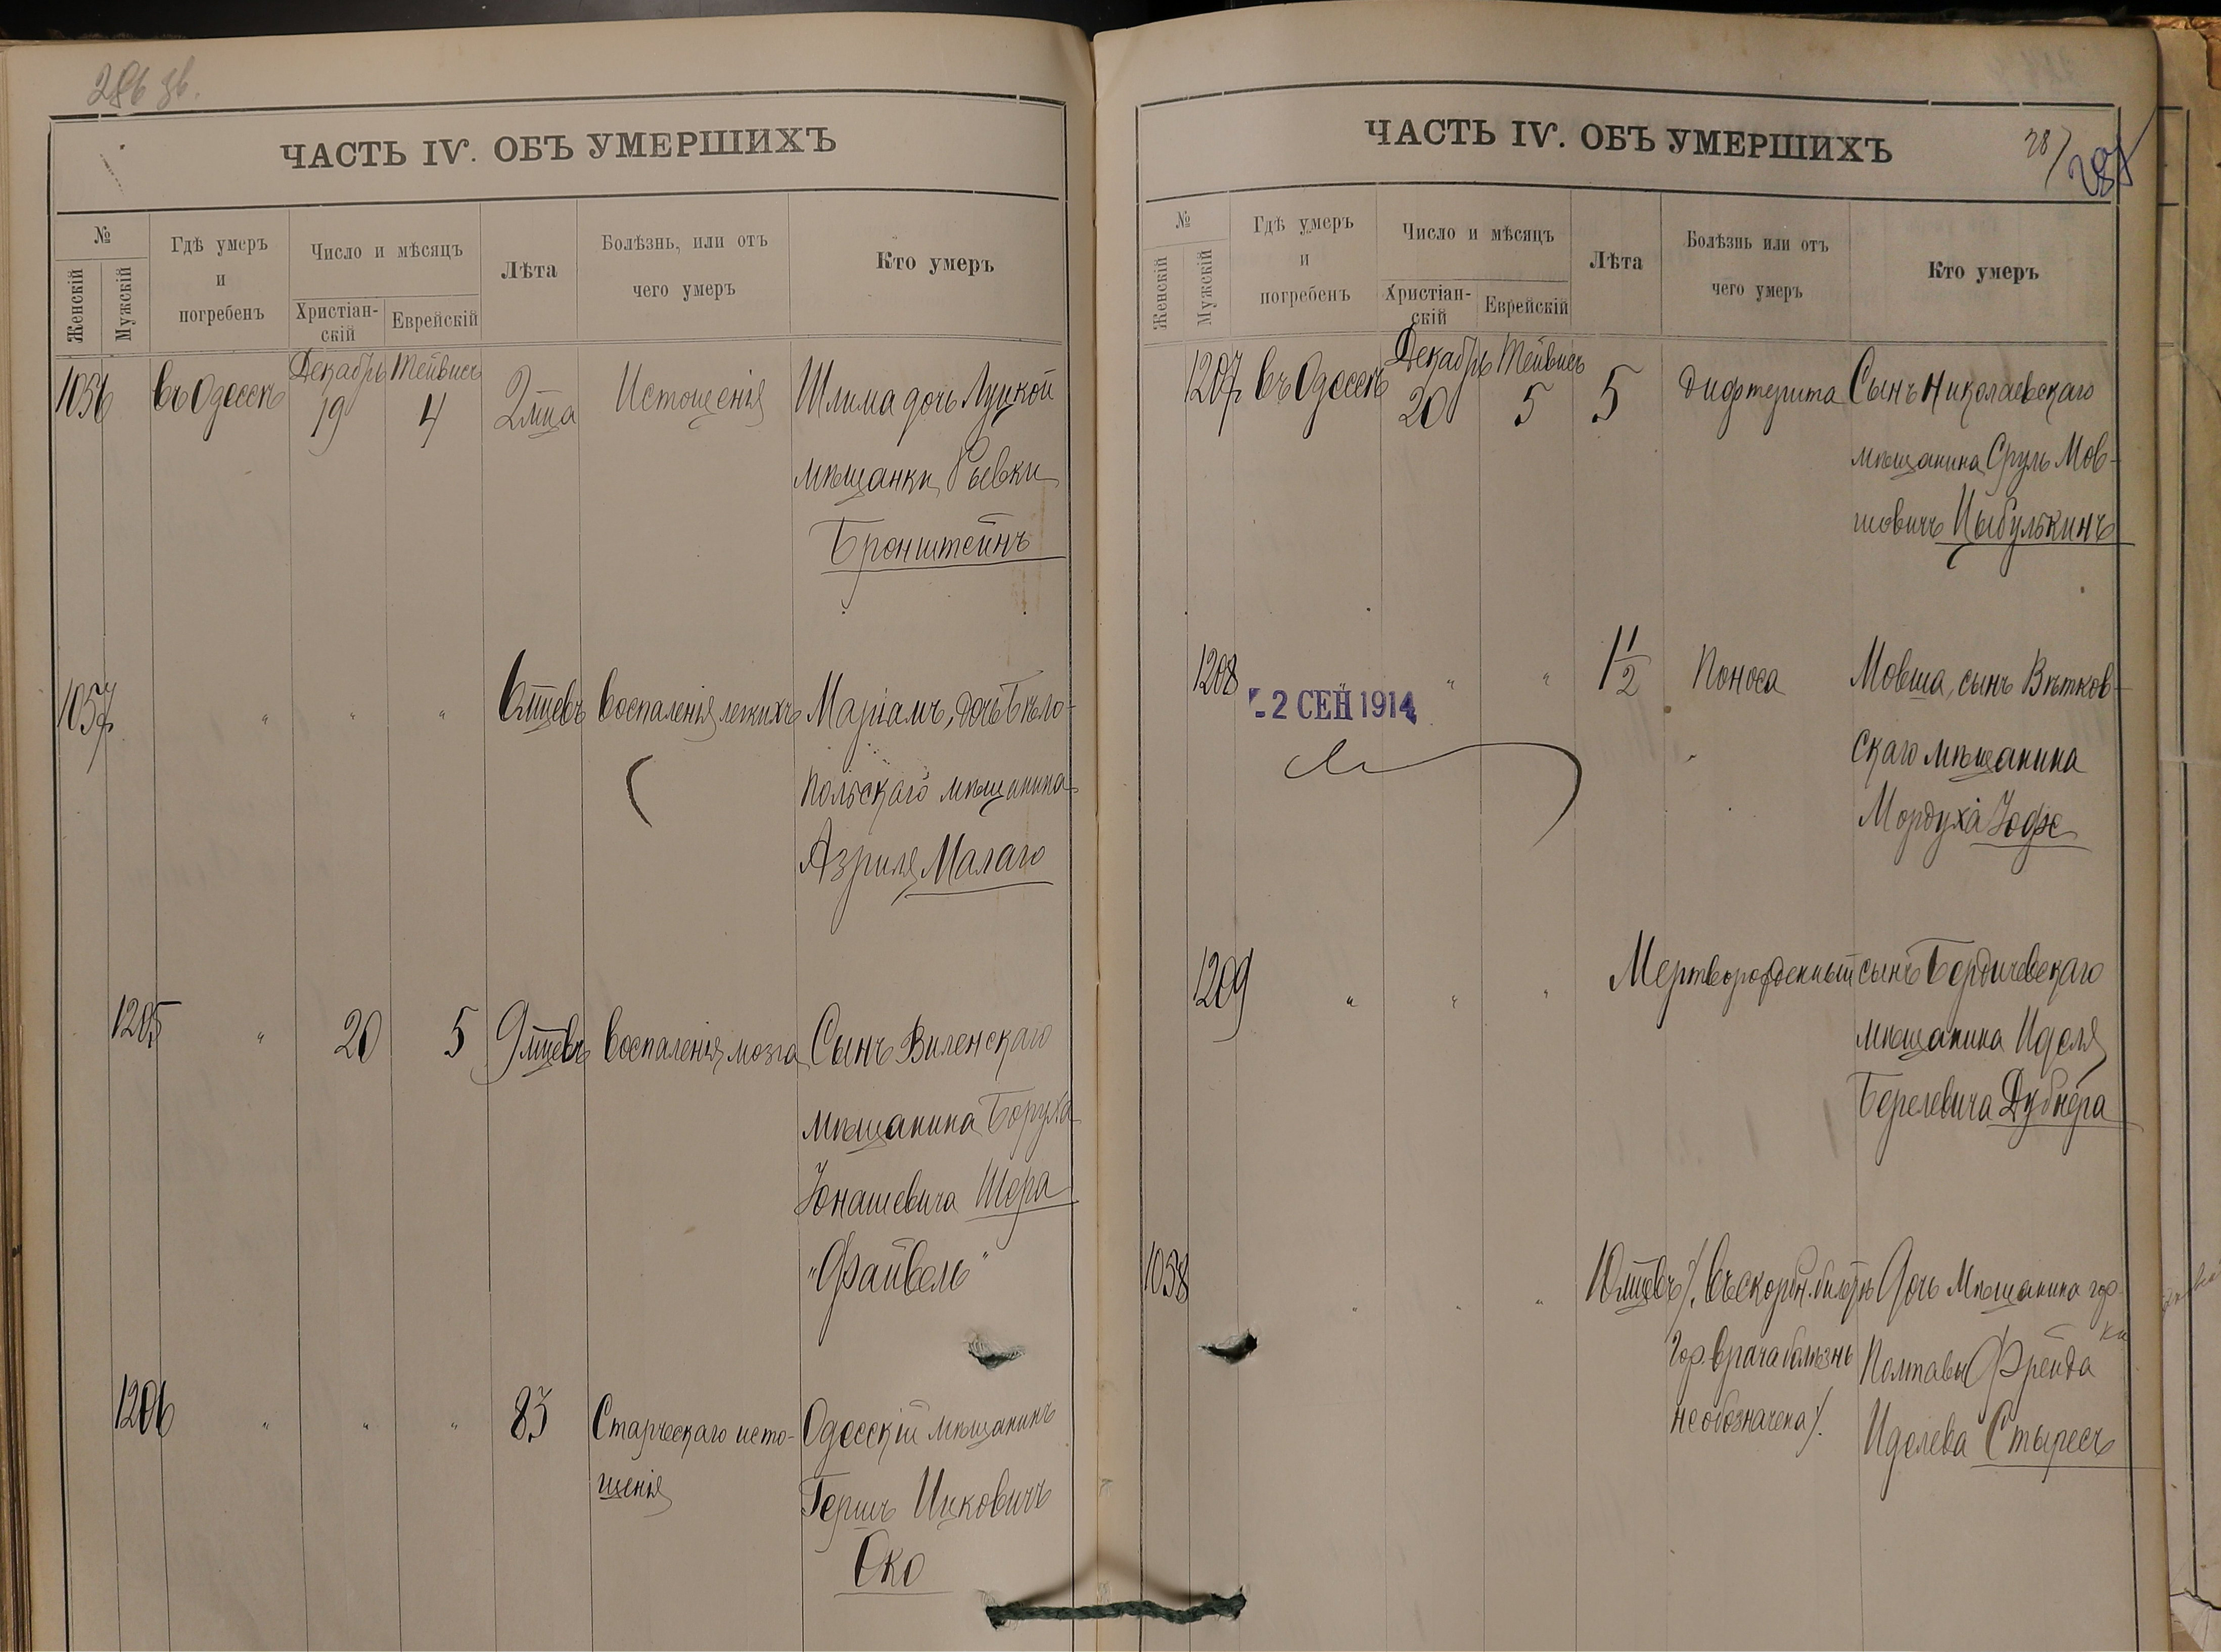 286 зв.
ЧАСТЬ IV. ОБЪ УМЕРШИХЪ
№
Женскій
Мужскій
Гдѣ умеръ
и
погребенъ
Число и мѣсяцъ
Христіан-
скій
Еврейскій
Лѣта
Болѣзнь, или отъ
чего умеръ
Кто умеръ
Декабрь Тейвисъ
1056 въ Одессѣ 19 4 2 м̃ца Истощенія Шлима дочь Луцкой
мѣщанки Рывки
Бронштейнъ
1057 " " " 6 м̃цевъ Воспаленія легкихъ Маріамъ, дочь Бѣло-
польскаго мѣщанина
Азриля Малаго
1205 " 20 5 9 м̃цевъ Воспаленія мозга Сынъ Виленскаго
мѣщанина Боруха
Юнашевича Шера
"Файвель"
1206 " " " 83 Старческаго исто- Одесскій мѣщанинъ
щенія Гершъ Ицковичъ
Око
ЧАСТЬ IV. ОБЪ УМЕРШИХЪ
287
287
№
Женскій
Мужскій
Гдѣ умеръ
и
погребенъ
Число и мѣсяцъ
Христіан-
скій
Еврейскій
Лѣта
Болѣзнь или отъ
чего умеръ
Кто умеръ
Декабрь Тейвисъ
1207 въ Одессѣ 20 5 5 Дифтерита Сынъ Николаевскаго
мѣщанина Сруль Мов-
шовичъ Цыбулькинъ
1208 " " " 1 1/2 Поноса Мовша, сынъ Вѣтков-
-2 СЕН 1914
скаго мѣщанина
Мордуха Іофе
1209 " " " Мертворожденный сынъ Бердичевскаго
мѣщанина Иделя
Берелевича Дубнера
1058 " " " 10 м̃цевъ /. Въ скорбн. билетѣ Дочь Мѣщанина гор.
Гор. врача болѣзнь Полтавы Фрейда
не обозначена /. Иделева Стыресъ